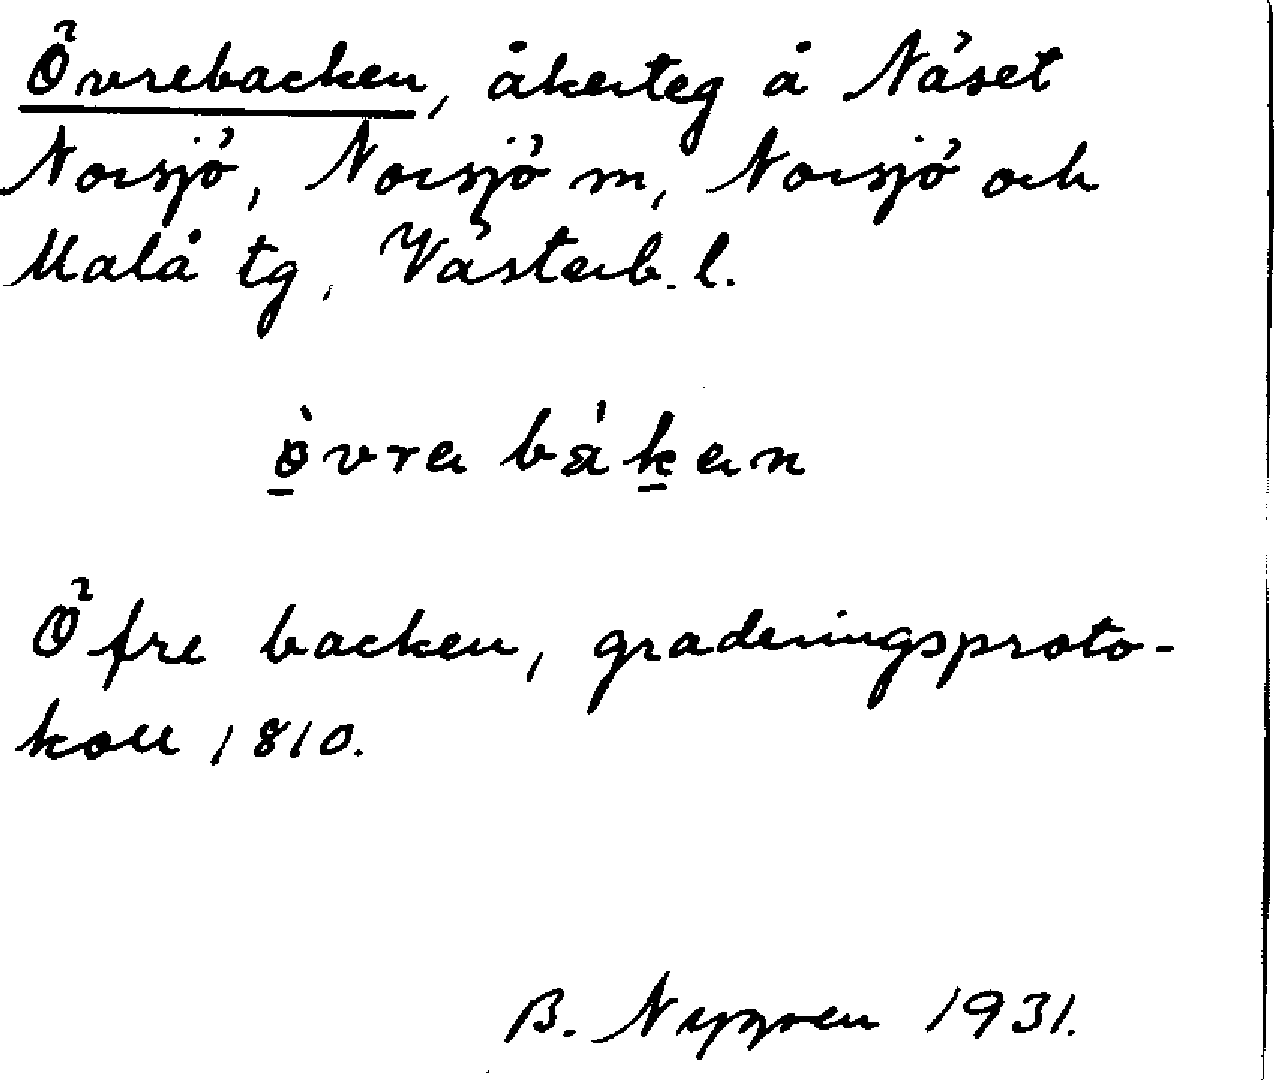 Övrebacken, åkerteg å Näset
Norsjö, Norsjö m, Norsjö och
Malå tg, Västerb. l.
ö̀vra bákan
Öfre backen, graderingsproto-
koll 1810.
B. Nygren 1931.